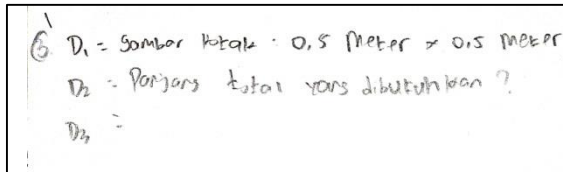 6. D₁ = Gambar kotak . 0,5 Meter x 0,5 meter
D₂ = Panjang total yang dibutuhkan ?
D₃ =